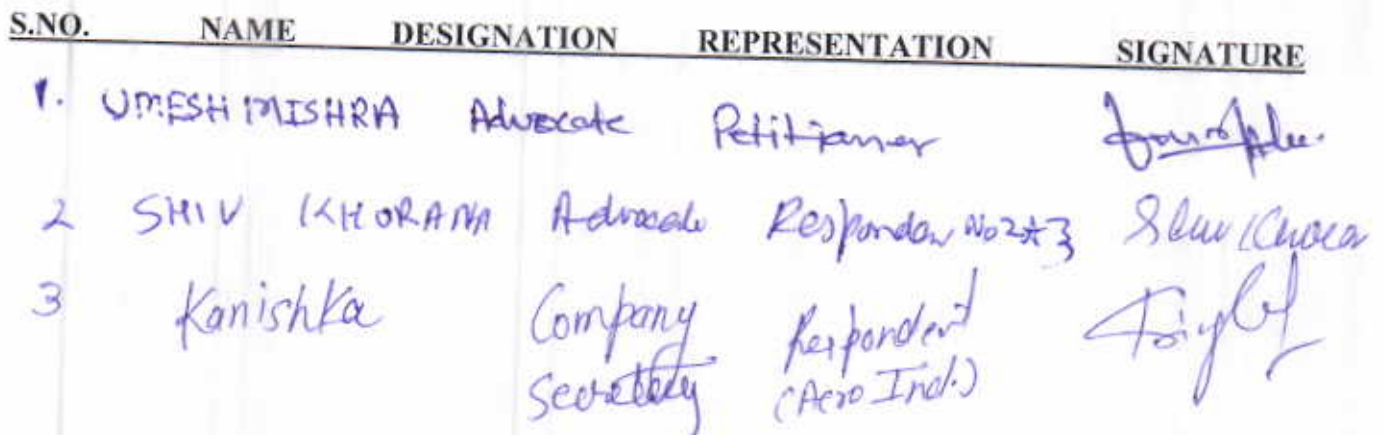 S.NO. NAME DESIGNATION REPRESENTATION SIGNATURE
1. UMESH MISHRA Advocate Petitioner
2 SHIV KHORANA Advocate Respondent No 2 & 3
3 Kanishka Company Respondent
Secretary (Aero Ind.)